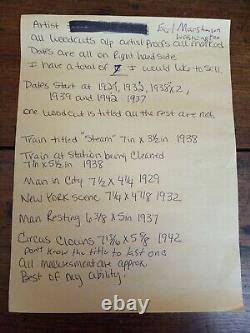 Artist
Earl Marshawn
Washington
all woodcuts a/p artist proofs all marked
Dates are all on Right hand side
I have a total of 7 I would like to sell.
Dates Start at 1929, 1932, 1938x2,
1939 and 1942 1937
one woodcut is titled all the rest are not.
Train titled "Steam" 7in x 3 1/2 in 1938
Train at Station being Cleaned
7in x 5 1/2 in 1938
Man in City 7 1/2 x 4 1/4 1929
New York scene 7 1/4 x 4 7/8 1932
Man Resting 6 3/8 x 5in 1937
Circus Clowns 7 13/16 x 5 5/8 1942
don't know the title to last one
All measurement are approx.
Best of my ability.